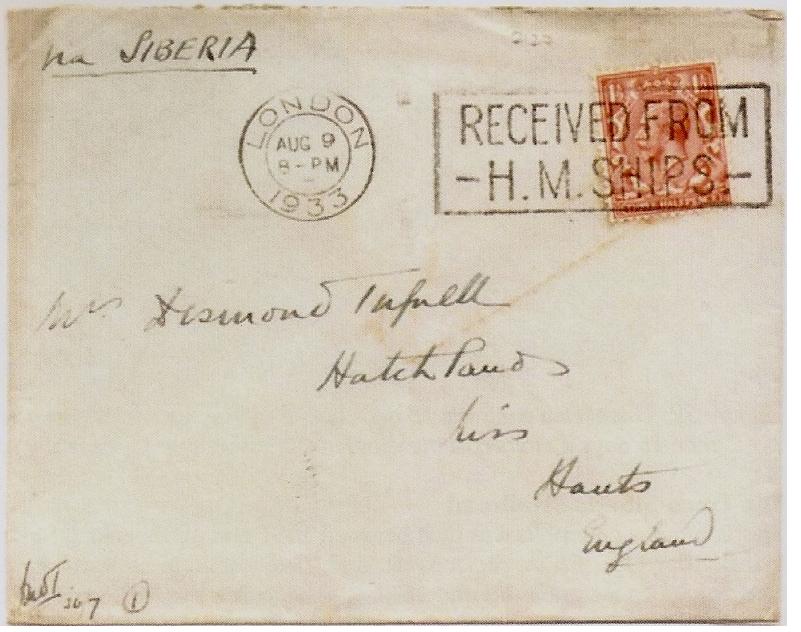 via SIBERIA
LONDON
AUG 9
8-PM
1933
RECEIVED FROM
-H.M.SHIPS-
Mrs Desmond Tufnell
Hatchlands
Liss
Hants
England
①